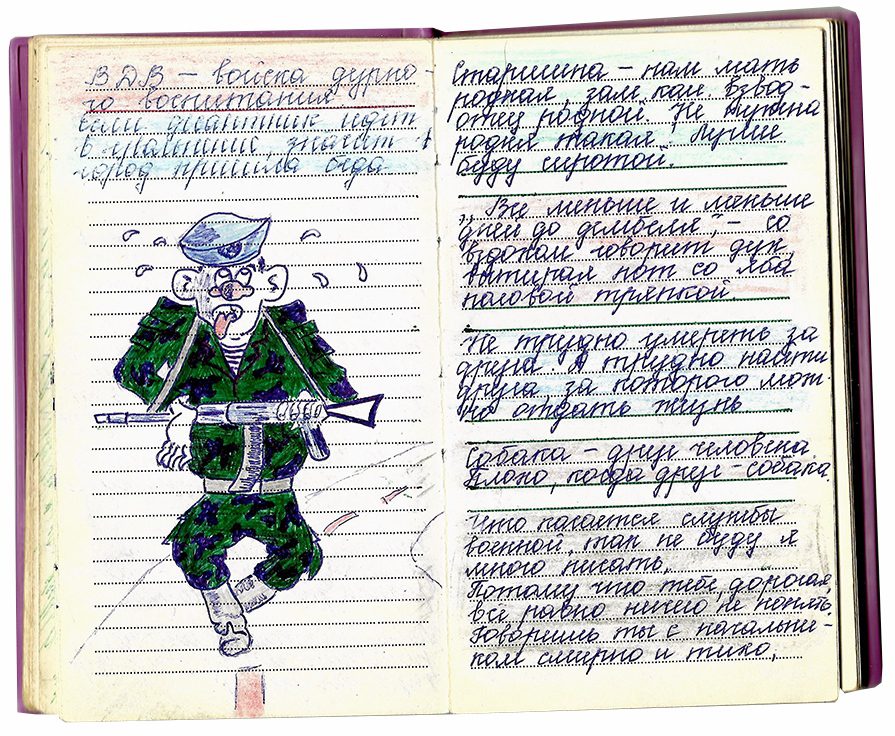 ВДВ – войска дурно-
го воспитания
Если десантник идёт
в увольнение, значит в
город пришла беда
Старшина – нам мать
родная, зам. ком. взвод –
отец родной. Не нужна
родня такая. Лучше
буду сиротой.
„Всё меньше и меньше
дней до дембеля", – со
вздохом говорит дух,
вытирая пот со лба
половой тряпкой.
Не трудно умереть за
друга. А трудно найти
друга за которого мож-
но отдать жизнь
Собака – друг человека.
Плохо, когда друг – собака.
Что касается службы
военной, так не буду я
много писать.
Потому что тебе, дорогая,
всё равно ничего не понять.
Говоришь ты с начальни-
ком смирно и тихо,